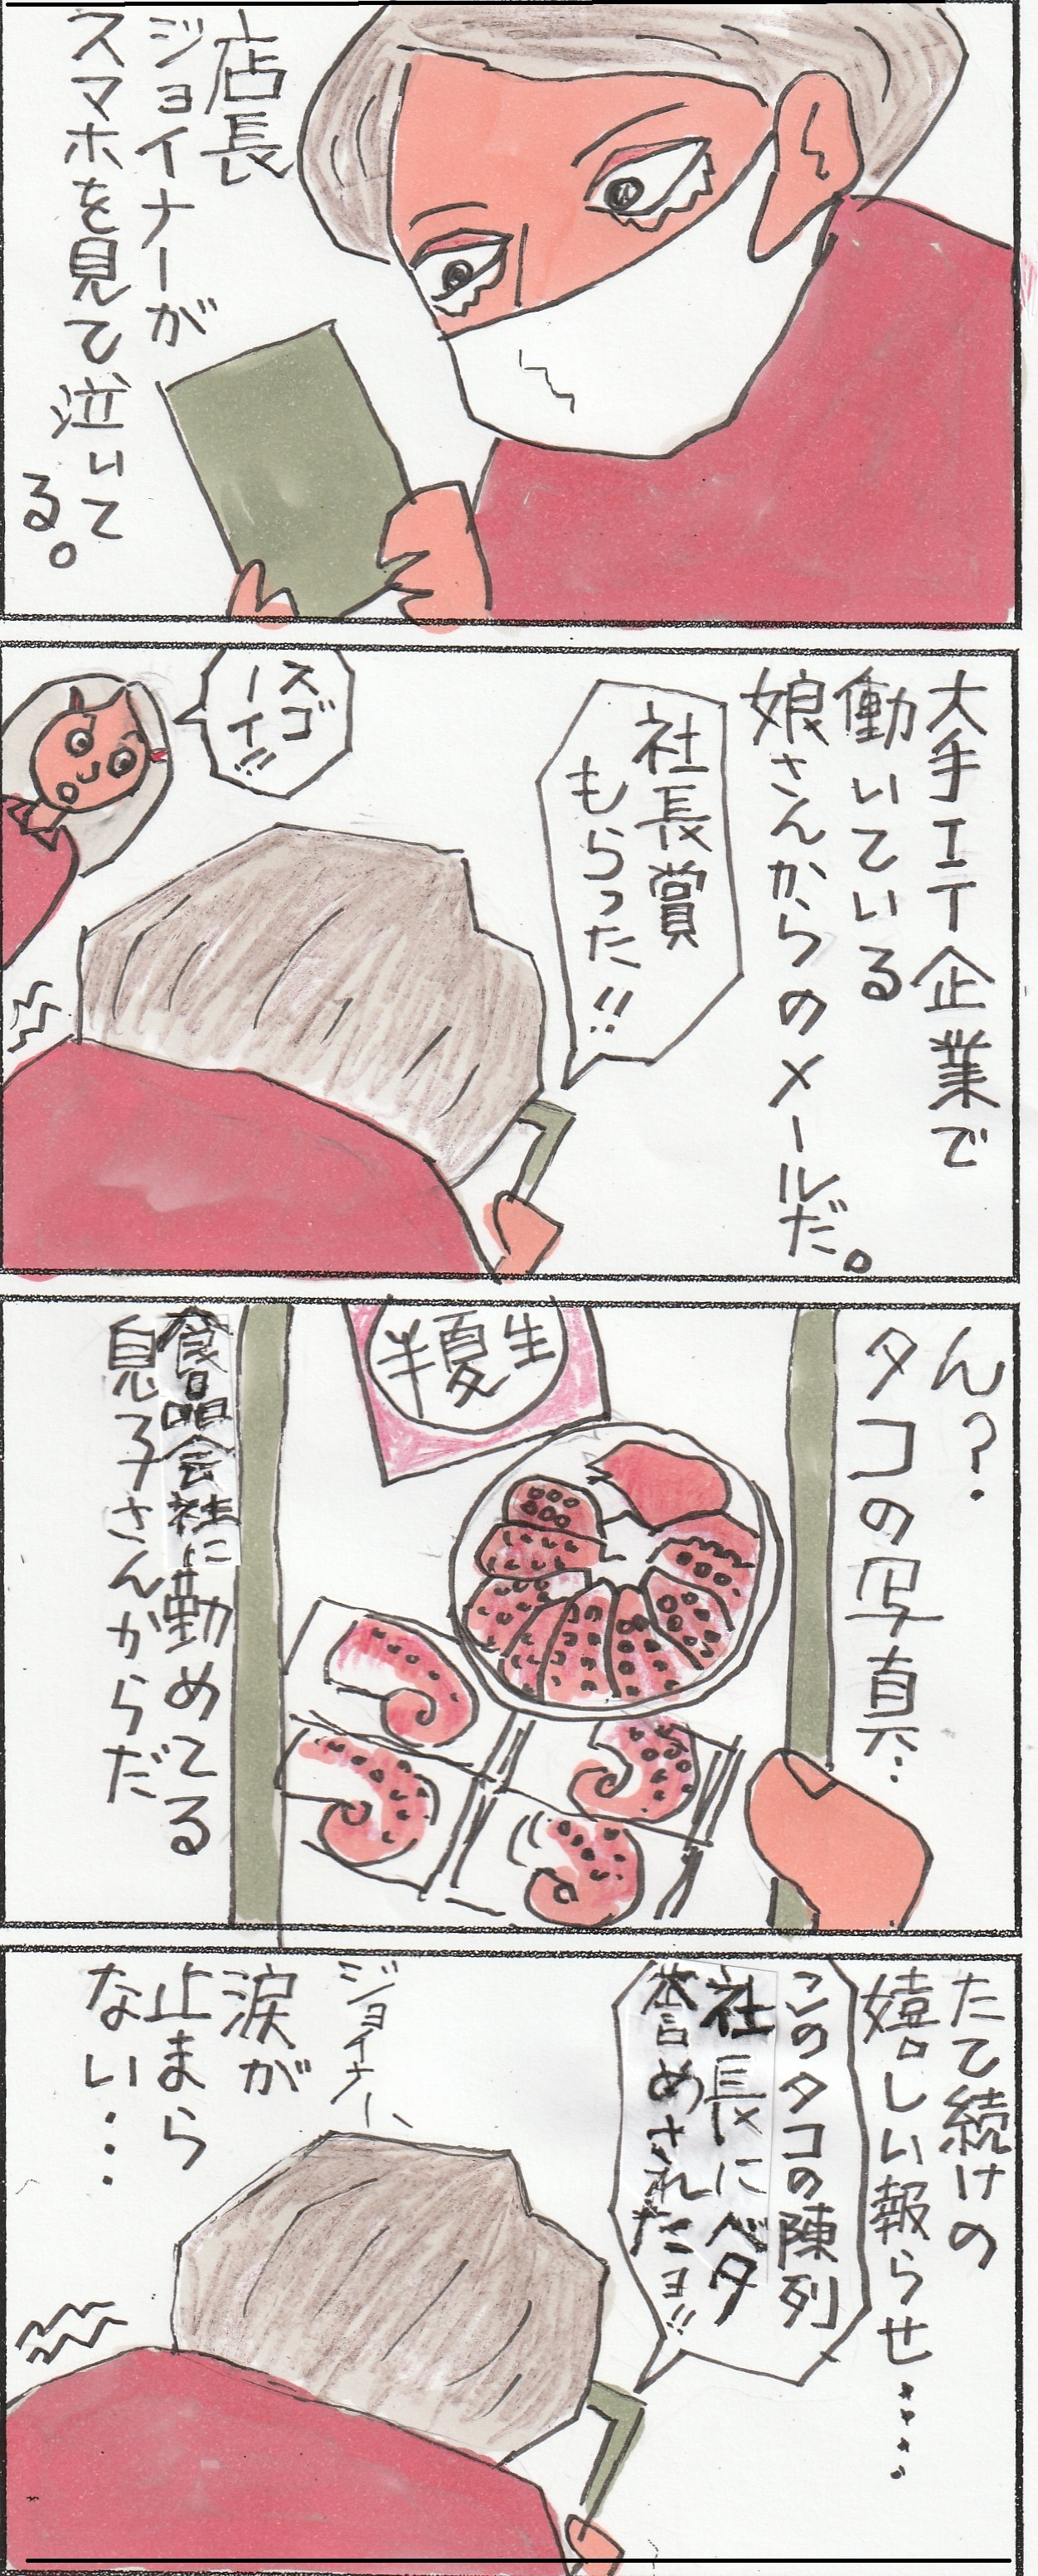 店長
ジョイナーが
スマホを見て泣いて
る。
大手エイ企業で
働いている
娘さんからのメールだ。
社長賞
もらった!!
スゴ
ーイ!!
ん?
タコの写真…
半夏生
食品会社に勤めてる
息子さんからだ
たて続けの
嬉しい報らせ……
このタコの陳列
社長にベタ
誉めされたヨ!!
ジョイナー、
涙が
止まら
ない…